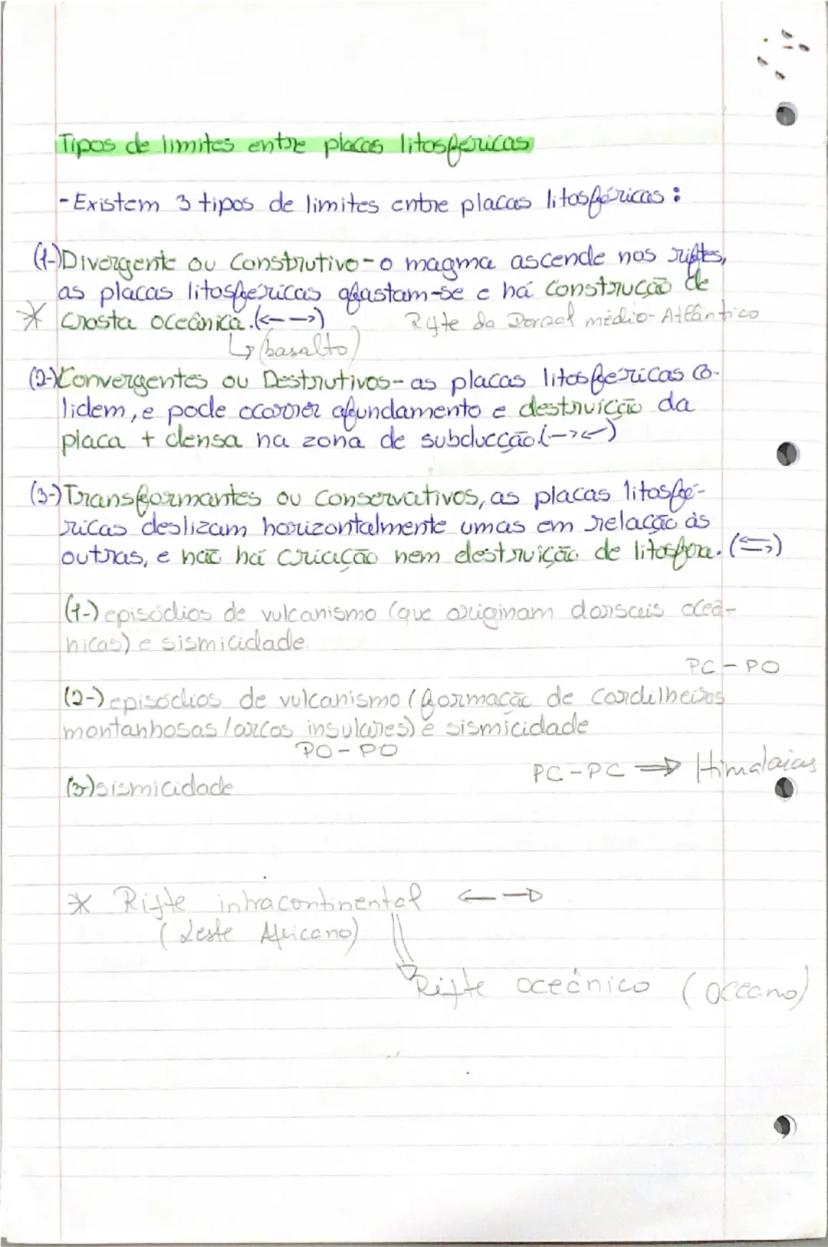 Tipos de limites entre placas litosféricas
- Existem 3 tipos de limites entre placas litosféricas:
(1-) Divergente ou Construtivo - o magma ascende nos riftes,
as placas litosféricas afastam-se e há construção de
* Crosta oceânica. (<-->) Rifte da Dorsal médio-Atlântico
↳ (basalto)
(2-) Convergentes ou Destrutivos - as placas litosféricas co-
lidem, e pode ocorrer afundamento e destruição da
placa + densa na zona de subducção. (-><-)
(3-) Transformantes ou Conservativos, as placas litosfé-
ricas deslizam horizontalmente umas em relação às
outras, e não há criação nem destruição de litosfera. (⇆)
(1-) episódios de vulcanismo (que originam dorsais oceâ-
nicas) e sismicidade.
PC - PO
(2-) episódios de vulcanismo (formação de cordilheiras
montanhosas / arcos insulares) e sismicidade
PO - PO
PC - PC ⇒ Himalaias
(3-) sismicidade
* Rifte intracontinental <- ->
(Leste Africano)
Rifte oceânico (oceano)